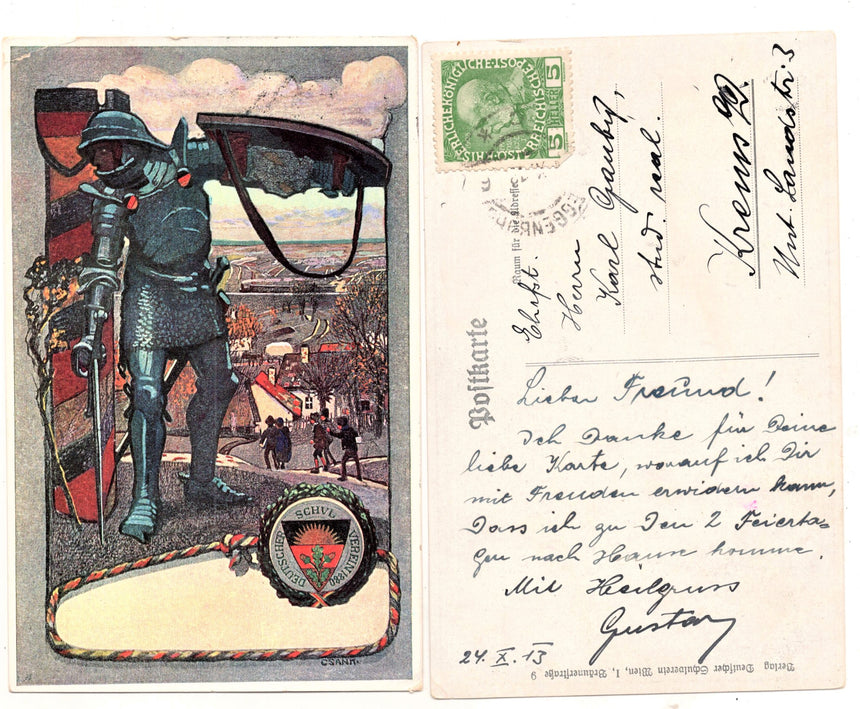 DEUTSCHER SCHVL VEREIN 1880
CSANK.
KAISERLICHE KÖNIGLICHE
ÖSTERREICHISCHE POST
5 HELLER 5
EGGENBURG
Raum für die Adresse
Ehrft.
Herrn
Karl
stud. real.
Krems
Unt. Landstr. 3
Postkarte
Lieber Freund!
Ich Danke für Deine
liebe Karte, worauf ich Dir
mit Freuden erwidern kann,
Dass ich zu Den 2 Feierta-
gen nach Hause komme.
Mit Heilgruss
Gustav
24. X. 13
Verlag Deutscher Schulverein Wien, I, Bräunerstraße 9